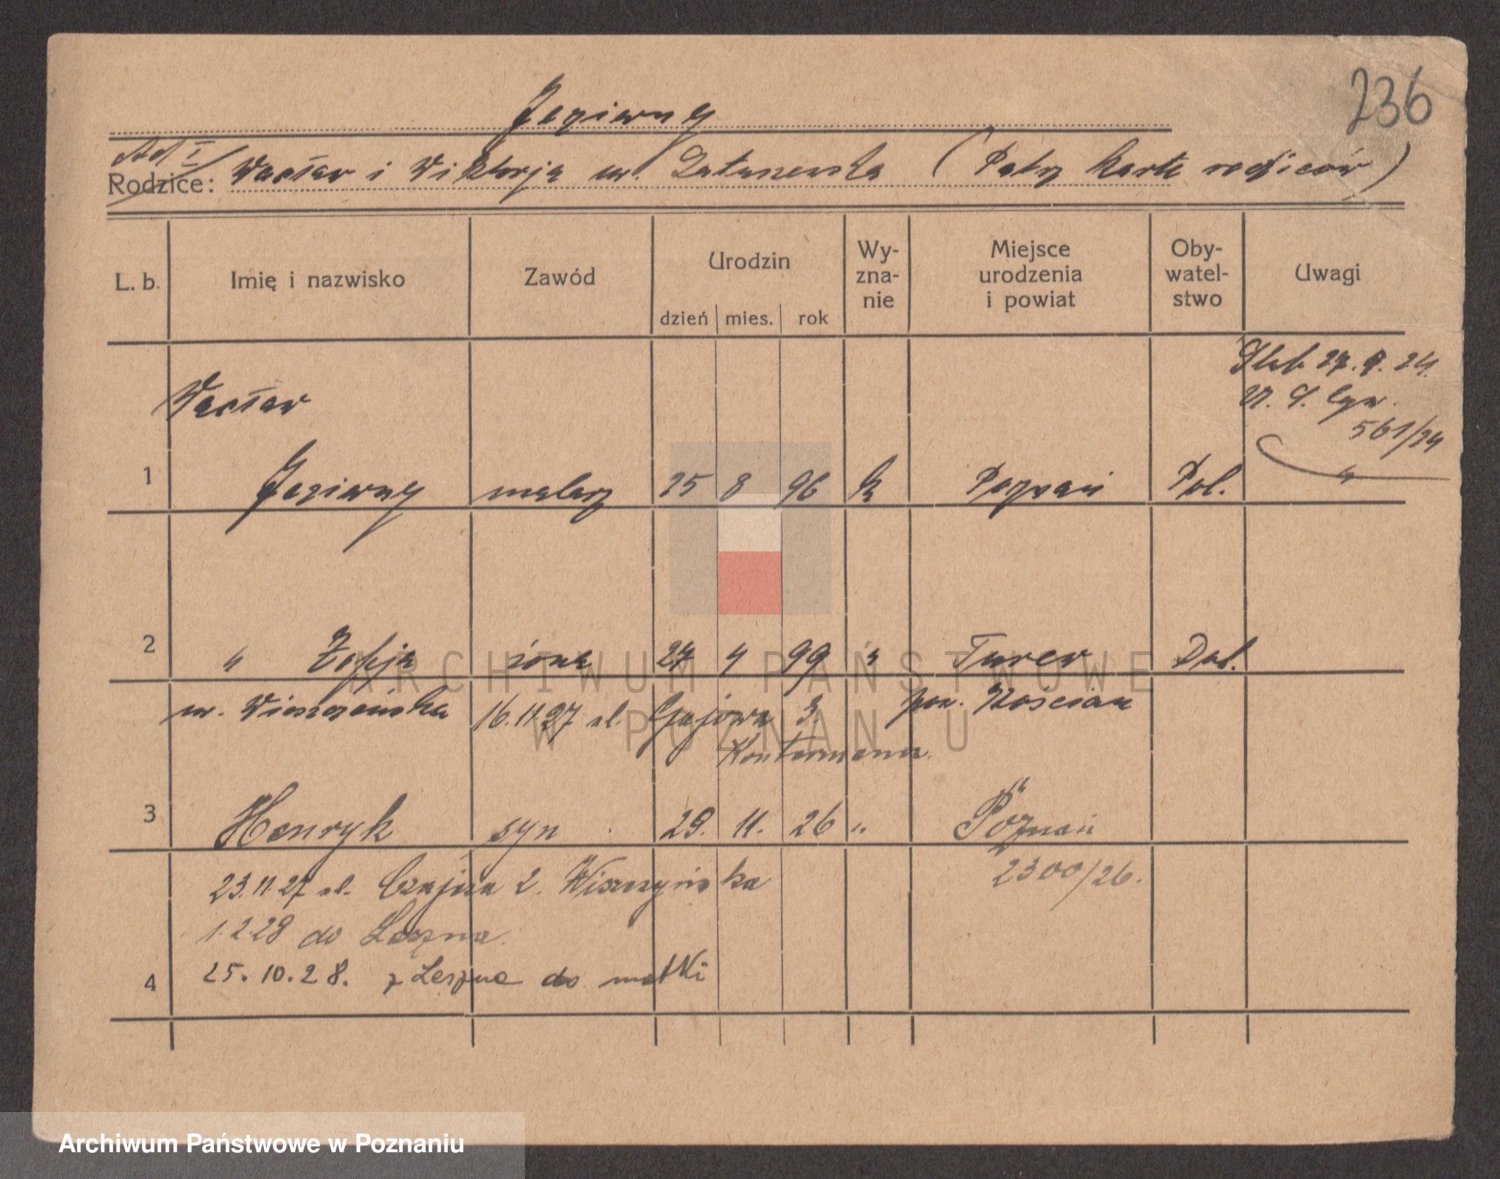 236
Jezierny
Ad I
Rodzice: Wacław i Wiktorja ur. (Patrz karte rodziców)
L. b. Imię i nazwisko Zawód Urodzin dzień mies. rok Wyznanie Miejsce urodzenia i powiat Obywatelstwo Uwagi
27. 9. 24.
Wacław
561/24
1 Jezierny malarz 25 8 96 k Poznań Pol. "
2 " Zofja żona 27 4 99 " Turew Pol.
ur. 16.11.27 ul. Gajowa 3 pow. Kościan
3 Henryk syn 29. 11. 26 " Poznań
23.11.27 ul. 2. Wiszczyńska 2300/26.
1.2.28 do Leszna.
4 25.10.28. z Leszna do matki
ARCHIWUM PAŃSTWOWE
W POZNANIU
Archiwum Państwowe w Poznaniu